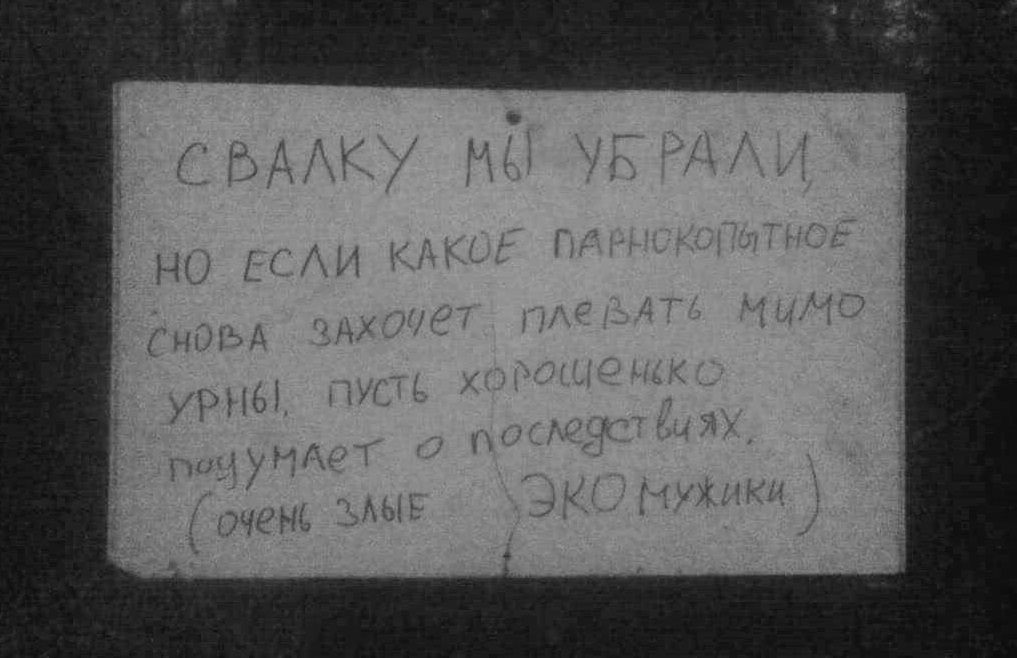 СВАЛКУ МЫ УБРАЛИ,
НО ЕСЛИ КАКОЕ ПАРНОКОПЫТНОЕ
СНОВА ЗАХОЧЕТ ПЛЕВАТЬ МИМО
УРНЫ, ПУСТЬ ХОРОШЕНЬКО
ПОДУМАЕТ О ПОСЛЕДСТВИЯХ.
(ОЧЕНЬ ЗЛЫЕ ЭКОМУЖИКИ)